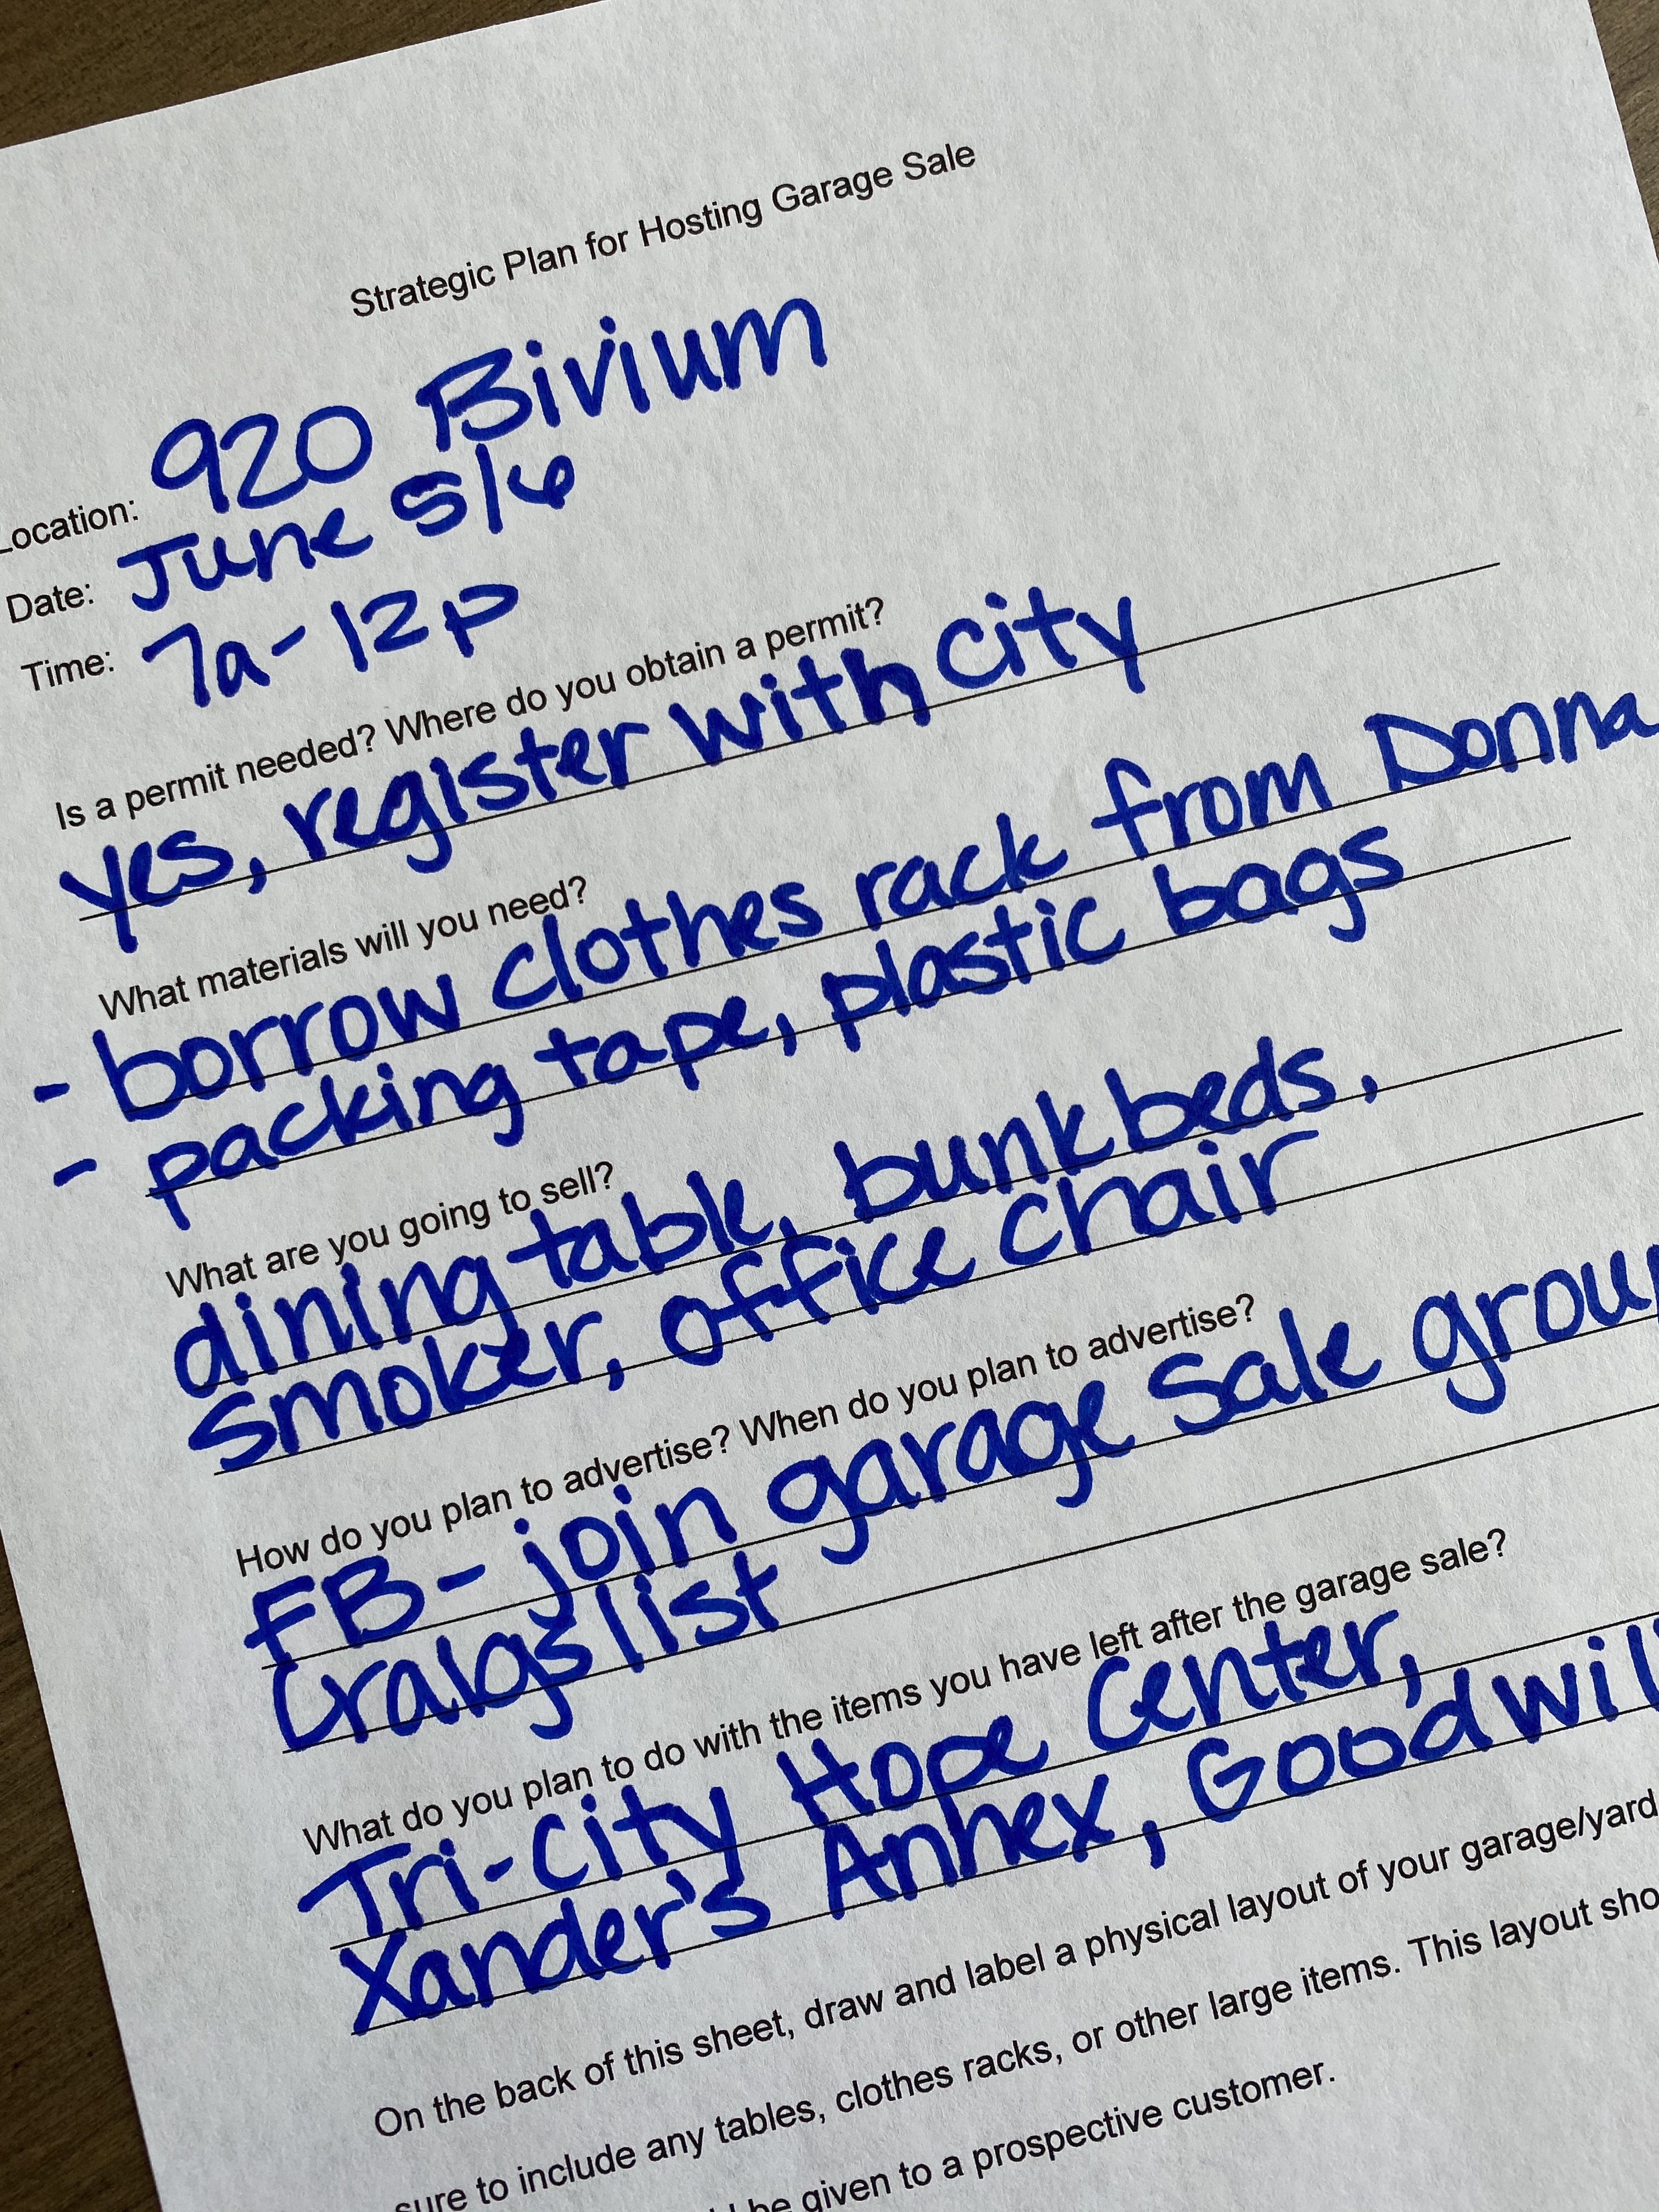 Strategic Plan for Hosting Garage Sale
Location: 920 Bivium
Date: June 5/6
Time: 7a-12p
Is a permit needed? Where do you obtain a permit?
yes, register with city
What materials will you need?
- borrow clothes rack from Donna
- packing tape, plastic bags
What are you going to sell?
dining table, bunkbeds,
smoker, office chair
How do you plan to advertise? When do you plan to advertise?
FB- join garage sale group
Craigslist
What do you plan to do with the items you have left after the garage sale?
Tri-City Hope Center,
Xander's Annex, Goodwill
On the back of this sheet, draw and label a physical layout of your garage/yard
sure to include any tables, clothes racks, or other large items. This layout sho
be given to a prospective customer.